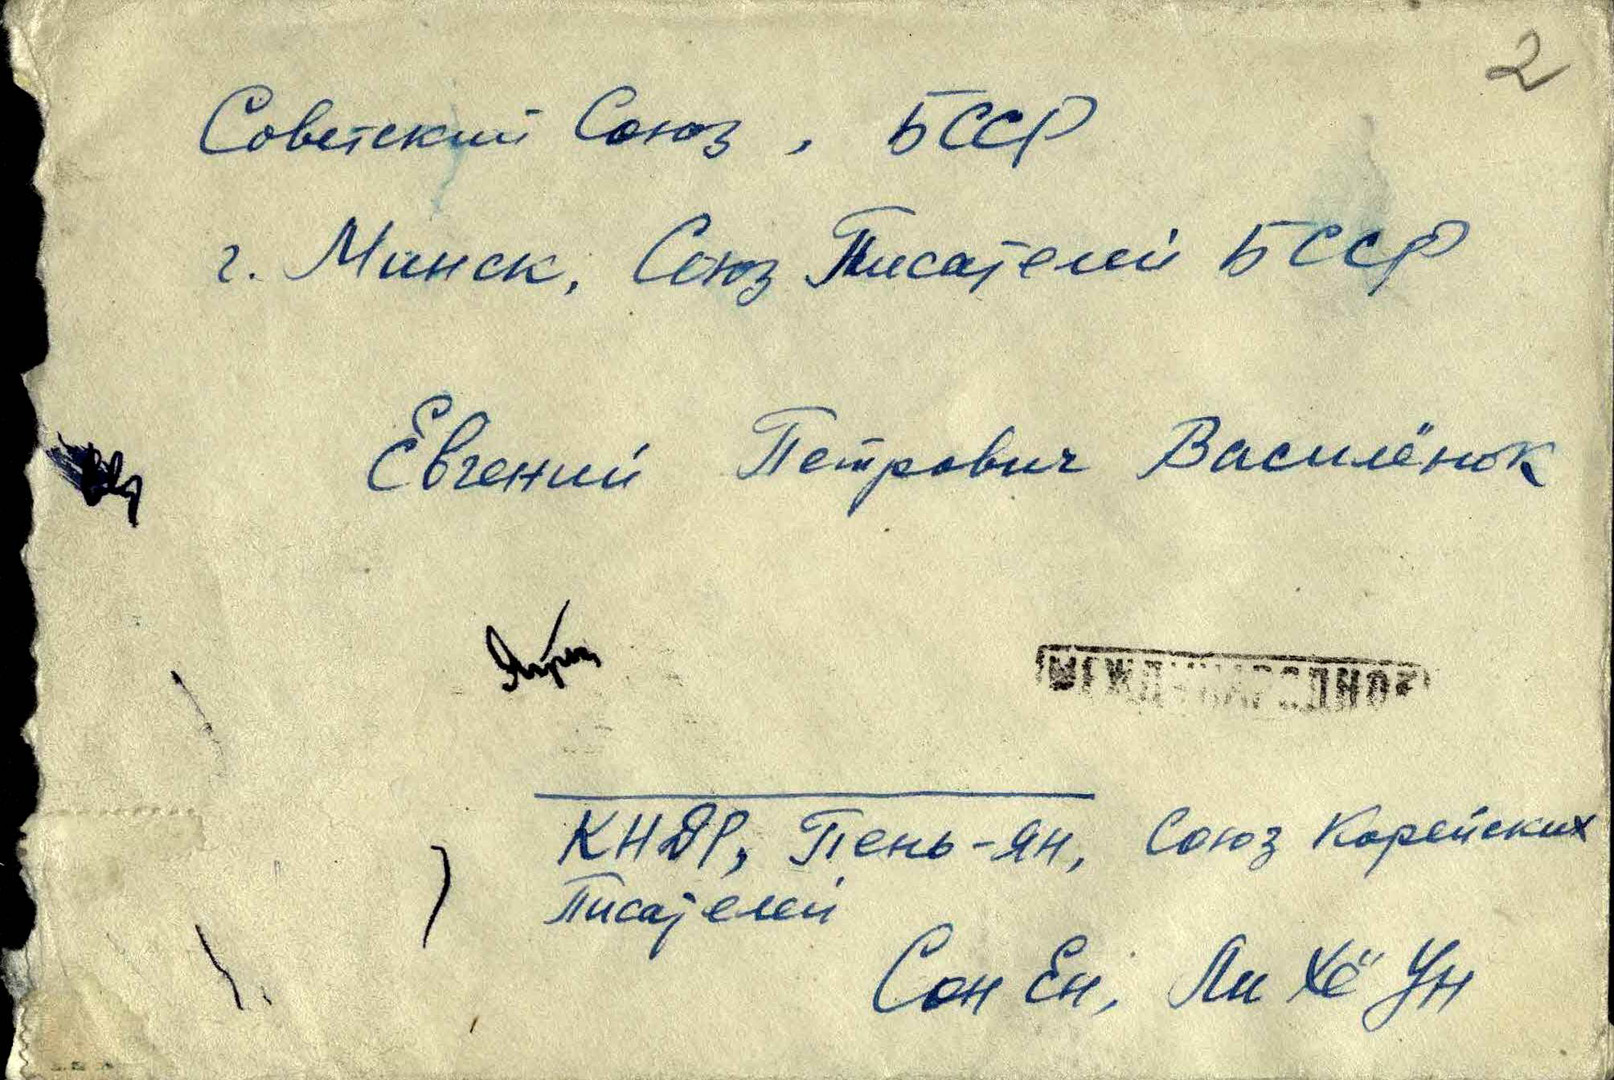 2
Советский Союз, БССР
г. Минск, Союз Писателей БССР
Евгений Петрович Василёнок
МЕЖДУНАРОДНОЕ
КНДР, Пень-ян, Союз Корейских
Писателей
Сон Ен, Ли Хё Ун